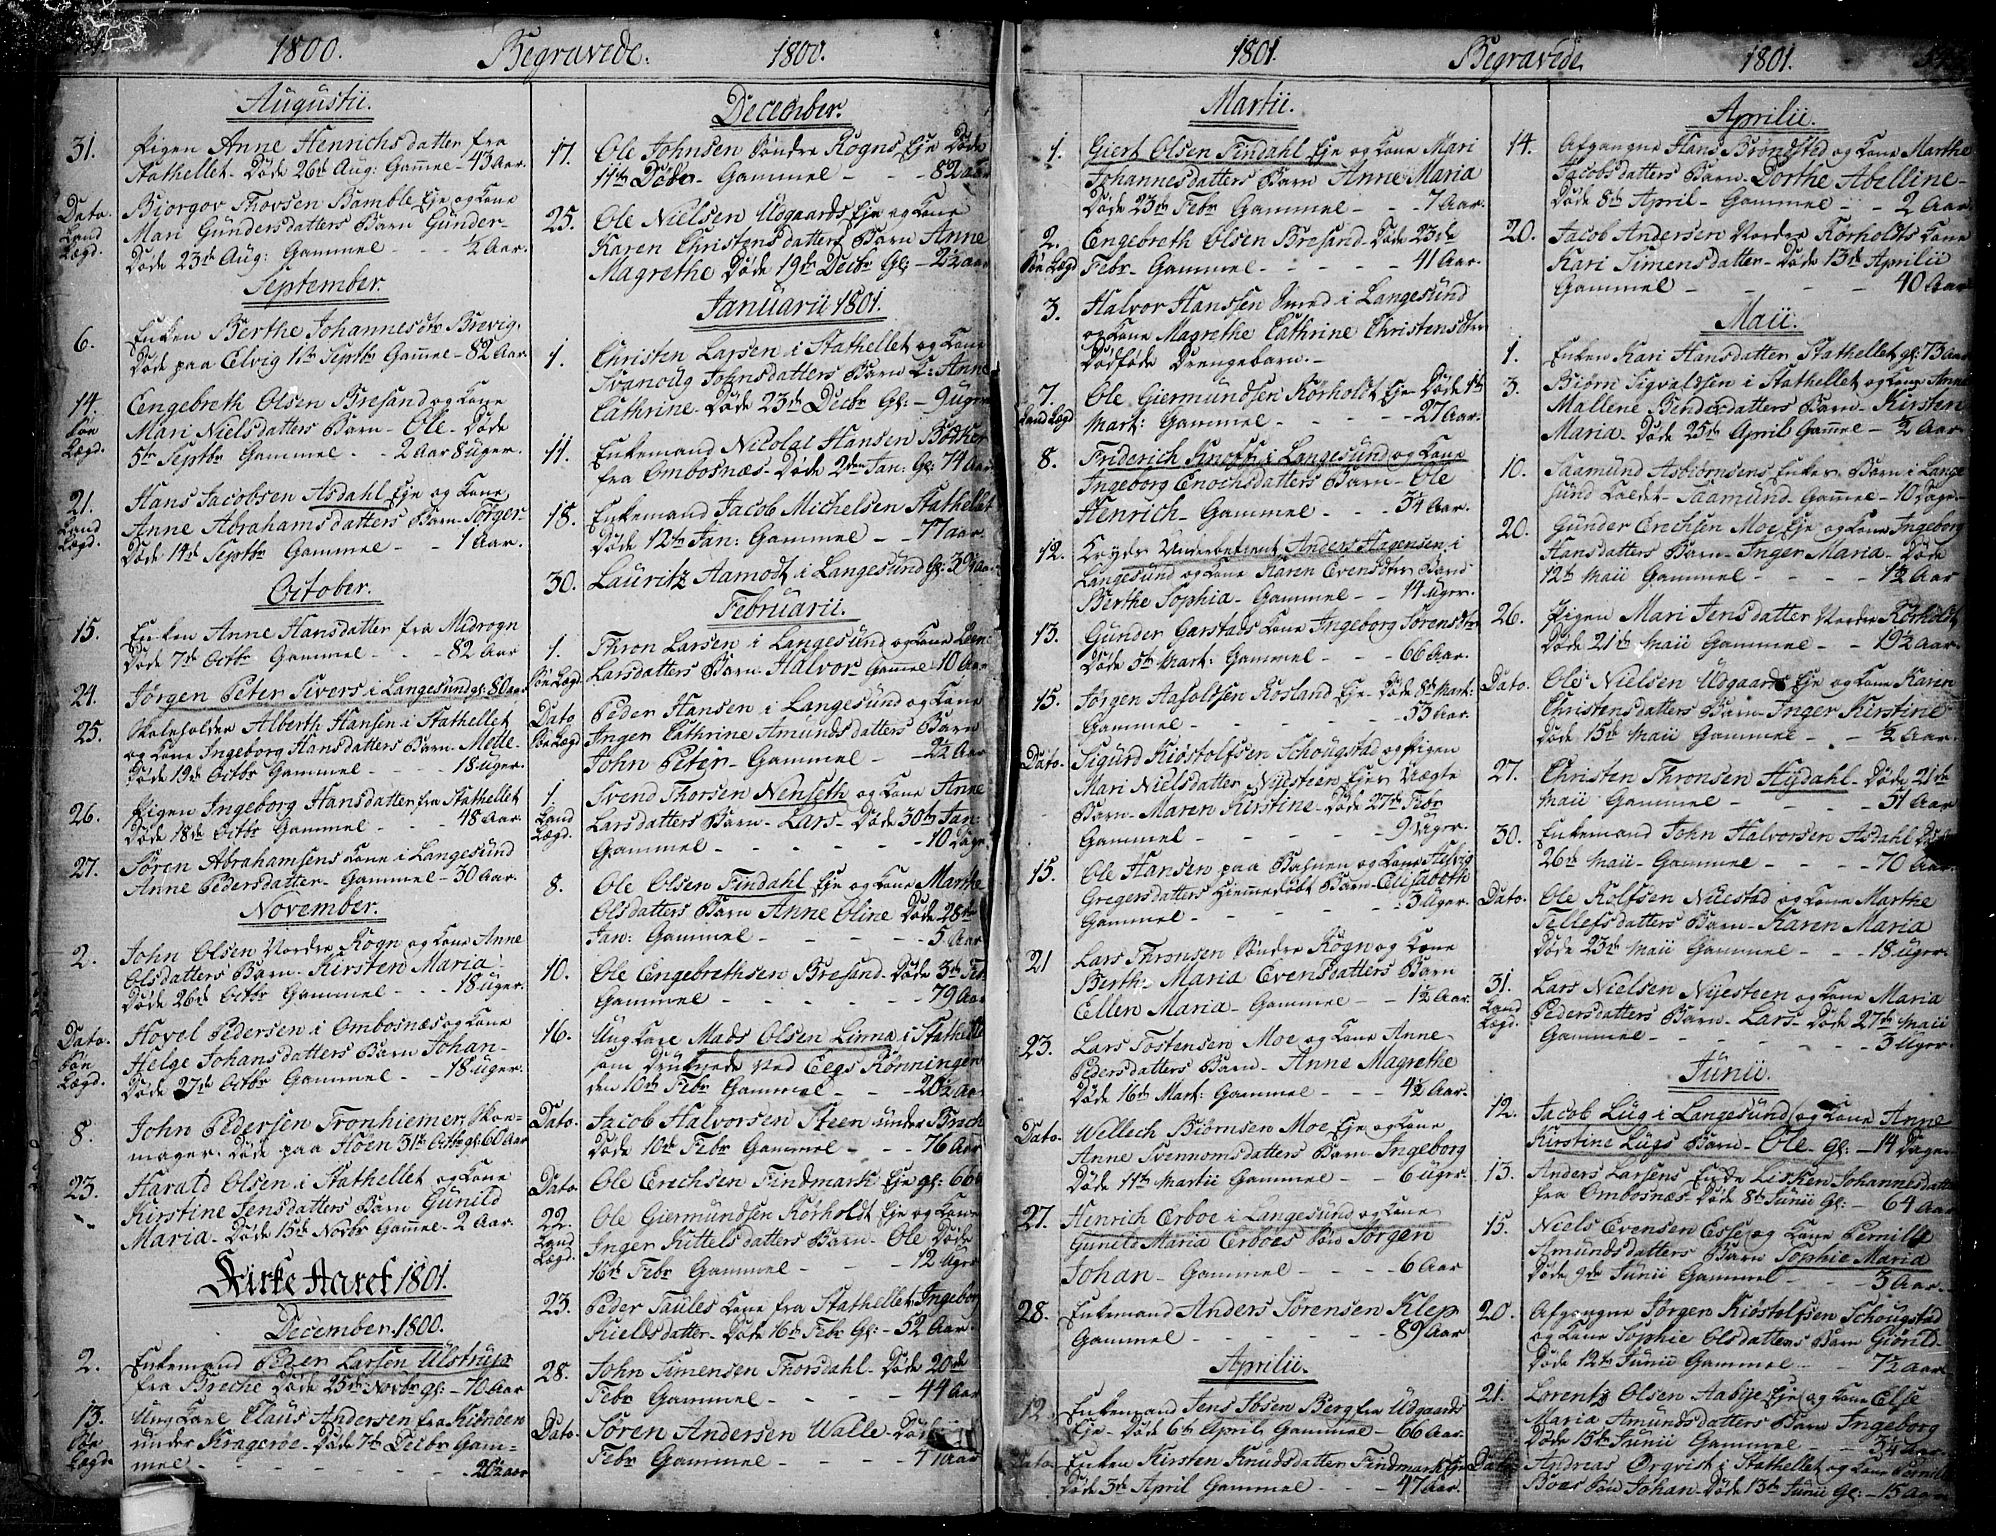 1800. Begravede. 1800.
Augustii.
31. Pigen Anne Henrichsdatter fra
Stathellet - Døde 26de Aug: Gammel - 43 Aar.
Dato. Biorgov Thovsen Bamble Eje og Kone
Land Mari Gundersdatters Barn Gunder -
Lægd. Døde 23de Aug: Gammel - - ½ Aar.
September.
6. Enken Berthe Johannesdtr Brevig.
Døde paa Elvig 1te Septbr Gammel - 82 Aar
14. Engebreth Olsen Bresand og Kone
Søe Mari Nielsdatters Barn - Ole - Døde
Lægd. 5te Septbr Gammel - - 2 Aar 8 uger.
21. Hans Jacobsen Asdahl Eje og Kone
Land Anne Abrahamsdatters Barn Torger -
Lægd. Døde 14de Septbr Gammel - - 1 Aar.
October.
15. Enken Anne Hansdatter fra Midrogn
Døde 7de Octbr Gammel - - 82 Aar
24. Jørgen Peter Sivers i Langesund gl: 80 aar
25. Skoleholder Alberth Hansen i Stathellet
og Kone Ingeborg Hansdatters Barn Mette -
Døde 19de Octbr Gammel - - 18 uger.
26. Pigen Ingeborg Hansdatter fra Stathellet
Døde 18de Octbr Gammel - - 48 Aar.
27. Søren Abrahamsens Kone i Langesund
Anne Pedersdatter - Gammel - 30 Aar.
November.
2. John Olsen Nordre Rogn og Kone Anne
Olsdatters Barn - Kirsten Maria -
Døde 26de Octbr Gammel - - 18 uger.
Dato. Hovel Pedersen i Ombosnæs og Kone
Søe Helge Johansdatters Barn Johan -
Lægd. Døde 27de Octbr Gammel - - 18 uger.
8. John Pedersen Tronhiemer Skoe-
mager - Døde paa Høen 31te Octbr gl: 60 Aar
23. Harald Olsen i Stathellet og Kone
Kirstine Jensdatters Barn Gunild
Maria - Døde 15de Novbr Gammel - 2 Aar.
Kirke Aaret 1801.
December 1800.
2. Enkemand Peder Larsen Ulstrup
fra Breche Døde 25de Novbr gl: - 70 Aar
13. Ung Karl Claus Andersen fra
Søe under Kragerøe - Døde 7de Decbr Gam-
Lægde mel - - - - 20½ aar
December.
17. Ole Johnsen Søndre Rogns Eje Døde
11te Døde - Gammel - - - 82 Aar
25. Ole Nielsen Udgaards Eje og Kone
Karen Christensdatters Barn Anne
Magrethe Døde 19de Decbr Gl: - 2½ aar
Januarii 1801.
1. Christen Larsen i Stathellet og Kone
Svanoug Johnsdatters Barn L: Anne
Cathrine - Døde 23de Decbr Gl: - 9 uger
11. Enkemand Nicolai Hansen Bødker
fra Ombosnæs - Døde 2den Jan: Gl: 74 Aar
18. Enkemand Jacob Michelsen Stathellet
Døde 12te Jan: Gammel - - 77 aar.
30. Lauritz Aamodt i Langesund Gl: 30½ Aar
Februarii.
1. Thron Larsen i Langesund og Kone
Søe Lægd Larsdatters Barn Halvor Gammel 10 Aar
Dato Peder Hansen i Langesund og Kone
Søe Lægd Inger Cathrine Amundsdatters Barn
John Peter - Gammel - - 2½ Aar
1. Svend Thorsen Nenseth og Kone Anne
Land Larsdatters Barn - Lars - Døde 30te Jan -
Lægd. Gammel - - - - 10 Dage
8. Ole Olsen Findahl Eje og Kone Marthe
Olsdatters Barn Anne Oline Døde 28de
Jan: Gammel - - - - 5 Aar
10. Ole Engebrethsen Bresand - Døde 3de Feb
Gammel - - - - 79 Aar
16. Ung Karl Mads Olsen Linna i Stathelle
som Druknede ved Eegs Rønningen
den 10de Febr Gammel - - 20½ Aar
Dato. Jacob Halvorsen Steen under
Døde 10de Febr Gammel - - 76 Aar
Dato. Ole Erichsen Findmark Eje gl: 66
22. Ole Giermundsen Rørholdt Eje og Kone
Land Inger Kittelsdatters Barn - Ole Døde
Lægd. 16de Febr Gammel - - - 12 Uger
23. Peder Taules Kone fra Stathellet Ingeborg
Kieldsdatter - Døde 16de Febr Gl: - 52 Aar.
28. John Simensen Thorsdahl - Døde 20de
Febr Gammel - - - 44 Aar
Dato. Søren Andersen Walle - Døde
Febr Gammel - - - Aar
1801. Begravede 1801.
Martii.
1. Giert Olsen Findahl Eje og Kone Mari
Johannesdatters Barn Anne Maria
Døde 23de Febr Gammel - - 7 Aar.
2. Engebreth Olsen Bresand - Døde 23de
Søe Lægd Febr - Gammel - - - 41 Aar.
3. Halvor Hanssen Smed i Langesund
og Kone Magrethe Cathrine Christensdtrs
Dødføde Drengebarn. -
7. Ole Giermundsen Rørholt Eje Døde 1te
Land Lægd Mart: Gammel - - - 27 Aar.
8. Friderich Knoph i Langesund og Kone
Ingeborg Enochsdatters Barn - Ole
Henrich - Gammel - - - 5¼ Aar.
12. Kryds Underbetient Anders Hagensen i
Langesund og Kone Karen Evensdtrs Barn
Berthe Sophia - Gammel - - 14 uger.
13. Gunder Garstads Kone Ingeborg Sørensdtr
Døde 5te Mart: Gammel - - - 66 Aar.
15. Jørgen Rosland Eje Døde 8de Mart:
Gammel - - - - 53 Aar.
Dato. Sigurd Kiøstolfsen Schougstad og Pigen
Mari Nielsdatter Nyesteen Ejes Uægte
Barn - Maren Kirstine - Døde 27de Febr
Gammel - - - - 9 Uger.
15. Ole Hansen paa og Kone
Gregersdatters Hiemmedøbt Barn - Elisabeth
Gammel - - - - 3 Uger.
21 Lars Thronsen Søndre Rogn og Kone
Berthe Maria Evensdatters Barn
Ellen Maria - Gammel - - 1½ Aar.
23. Lars Tostensen Moe og Kone Anne -
Pedersdatters Barn - Anne Magrethe
Døde 16de Mart: Gammel - - 4½ Aar.
Dato. Wellech Biørnsen Moe Eje og Kone
Anne Svennomsdatters Barn - Ingeborg
Døde 11te Martii Gammel - - 6 uger.
27. Henrich Erboe i Langesund og Kone
Gunild Maria Erboes Søn Jørgen
Johan - Gammel - - - 6 Aar
28. Enkemand Anders Sørensen Klep
Gammel - - - - 89 Aar
Aprilii.
12. Enkemand Jens Ibsen Berg fra Udgaards
Eje - Døde 6te April Gammel - - 66 Aar.
Dato. Enken Kirsten Knudsdatter Findmark Eje
Døde 3de April Gammel - - - 47 Aar.
Aprilii.
14. Afgangne Hans Brøndsted og Kone Marthe
Jacobsdatters Barn - Dorthe Abelline -
Døde 8de April - Gammel - - 2 Aar.
20. Jacob Andersen Nordre Rørholts Kone
Kari Simensdatter - Døde 13de Aprilii
Gammel - - - - 40 Aar
Maii.
1. Enken Kari Hansdatter Stathellet gl: 73 aar
3. Biørn Sigvaldsen i Stathellet og Kone Anne
Mallene Bendixdatters Barn - Kirsten
Maria - Døde 25de April Gammel - ½ Aar.
10. Saamund Asbiørnsens Enkes Barn i Lange
sund Kaldet - Saamund - Gammel - 10 Dage -
20. Gunder Erichsen Moe Eje og Kone Ingeborg
Hansdatters Barn - Inger Maria - Døde
12te Maii Gammel - - - 1½ Aar
26. Pigen Mari Jensdatter Nordre Rørholt
Døde 21de Maii Gammel - - 19½ Aar.
Dato. Ole Nielsen Udgaards Eje og Kone Karen
Christensdatters Barn - Inger Kirstine
Døde 15de Maii Gammel - - ½ Aar.
27. Christen Thronsen Hydahl - Døde 21de
Maii Gammel - - - 51 Aar
30. Enkemand John Halvorsen Asdahl Døde
26de Maii - Gammel - - - 70 Aar.
Dato. Ole Rolfsen Nuestad og Kone Marthe
Tellefsdatters Barn - Karen Maria
Døde 23de Maii Gammel - - 18 uger.
31. Lars Nielsen Nyesteen og Kone Maria
Land Pedersdatters Barn - Lars - Døde 27de Maii
Lægd. Gammel - - - - 3 Uger.
Junii.
12. Jacob Lug i Langesund og Kone Anne
Kirstine Lugs Barn - Ole - gl: - 14 Dage
13. Anders Larsens Enke Lisken Johannesdatter
fra Ombosnæs - Døde 8de Junii Gl: - 64 Aar
15. Niels Evensen Esse og Kone Pernille
Amundsdatters Barn Sophie Maria
Døde 9de Junii Gammel - - 3 Aar.
20. Afgangne Jørgen Kiøstolfsen Schougstad
og Kone Sophie Olsdatters Barn
Døde 12te Junii Gammel - - 7½ Aar
21. Lorentz Olsen Aabye Eje og Kone Else
Maria Amundsdatters Barn Ingeborg
Døde 15de Junii Gammel - - 3¼ Aar.
Dato. Andreas Ørqvist i Stathellet og Kone Pernille
Boas Søn Johan - Døde 13de Junii Gl: - 15 Aar